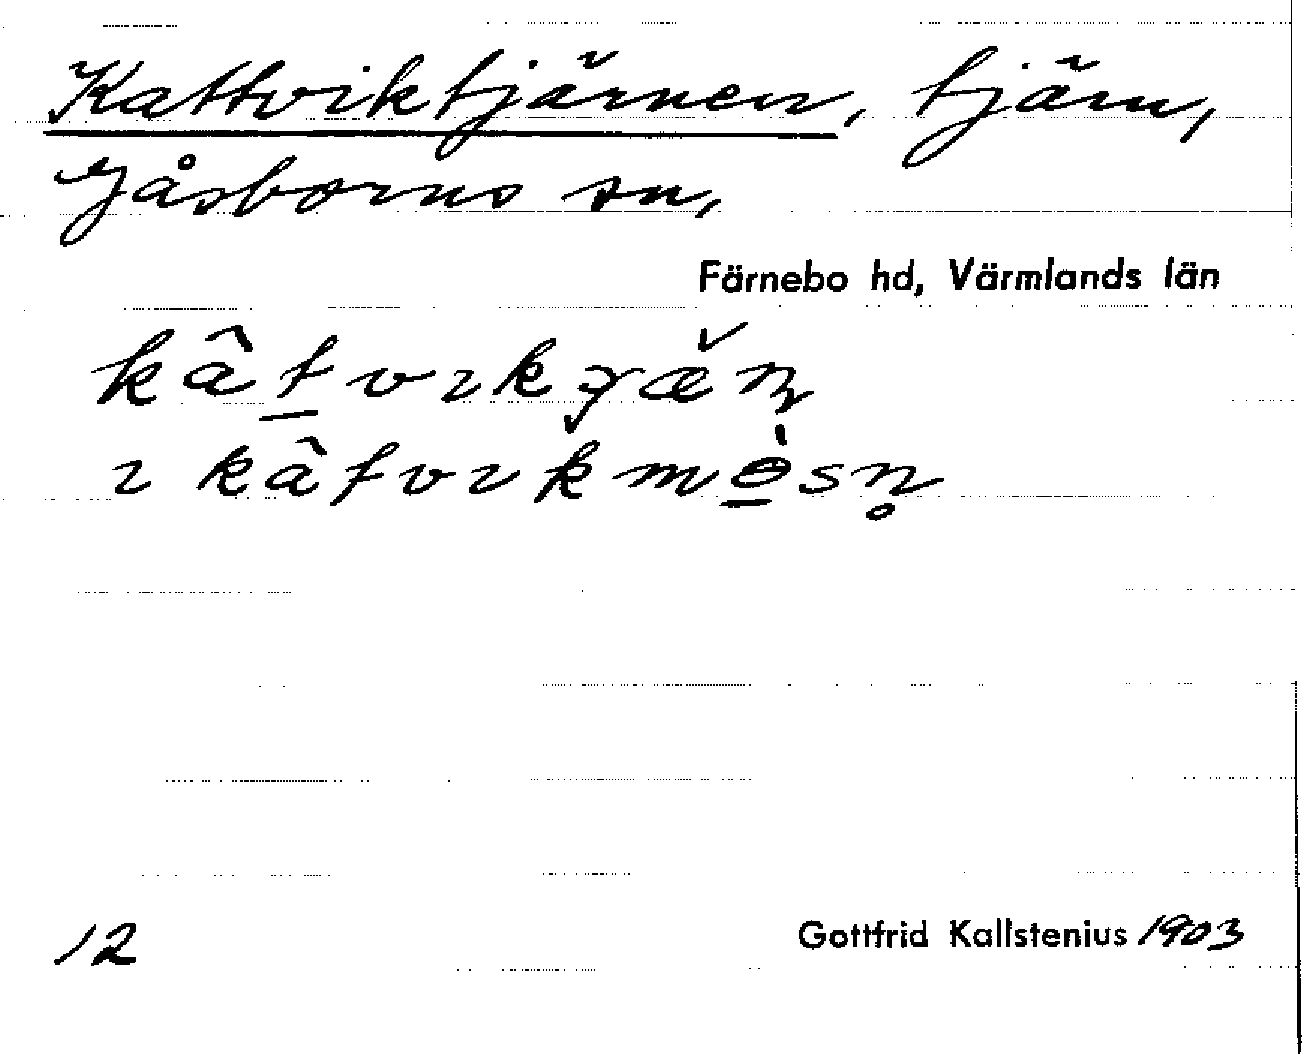 Kattviktjärnen, tjärn,
Gåsborns sn,
Färnebo hd, Värmlands län
kât̠vıkɟæ̌ɳ
ı kâtvıkmɵ̠̀sn̥
12 Gottfrid Kallstenius 1903